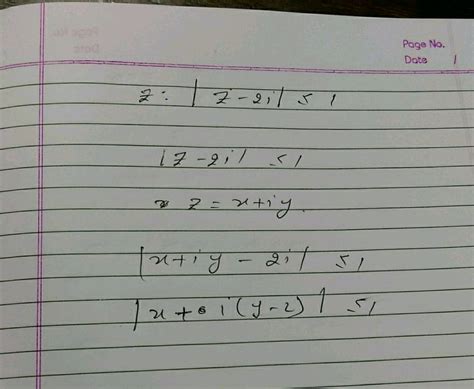 Page No.
Date 1
z: |z-2i| ≤ 1
|z-2i| ≤ 1
z = x+iy.
|x+iy - 2i| ≤ 1
|x + i(y-2)| ≤ 1